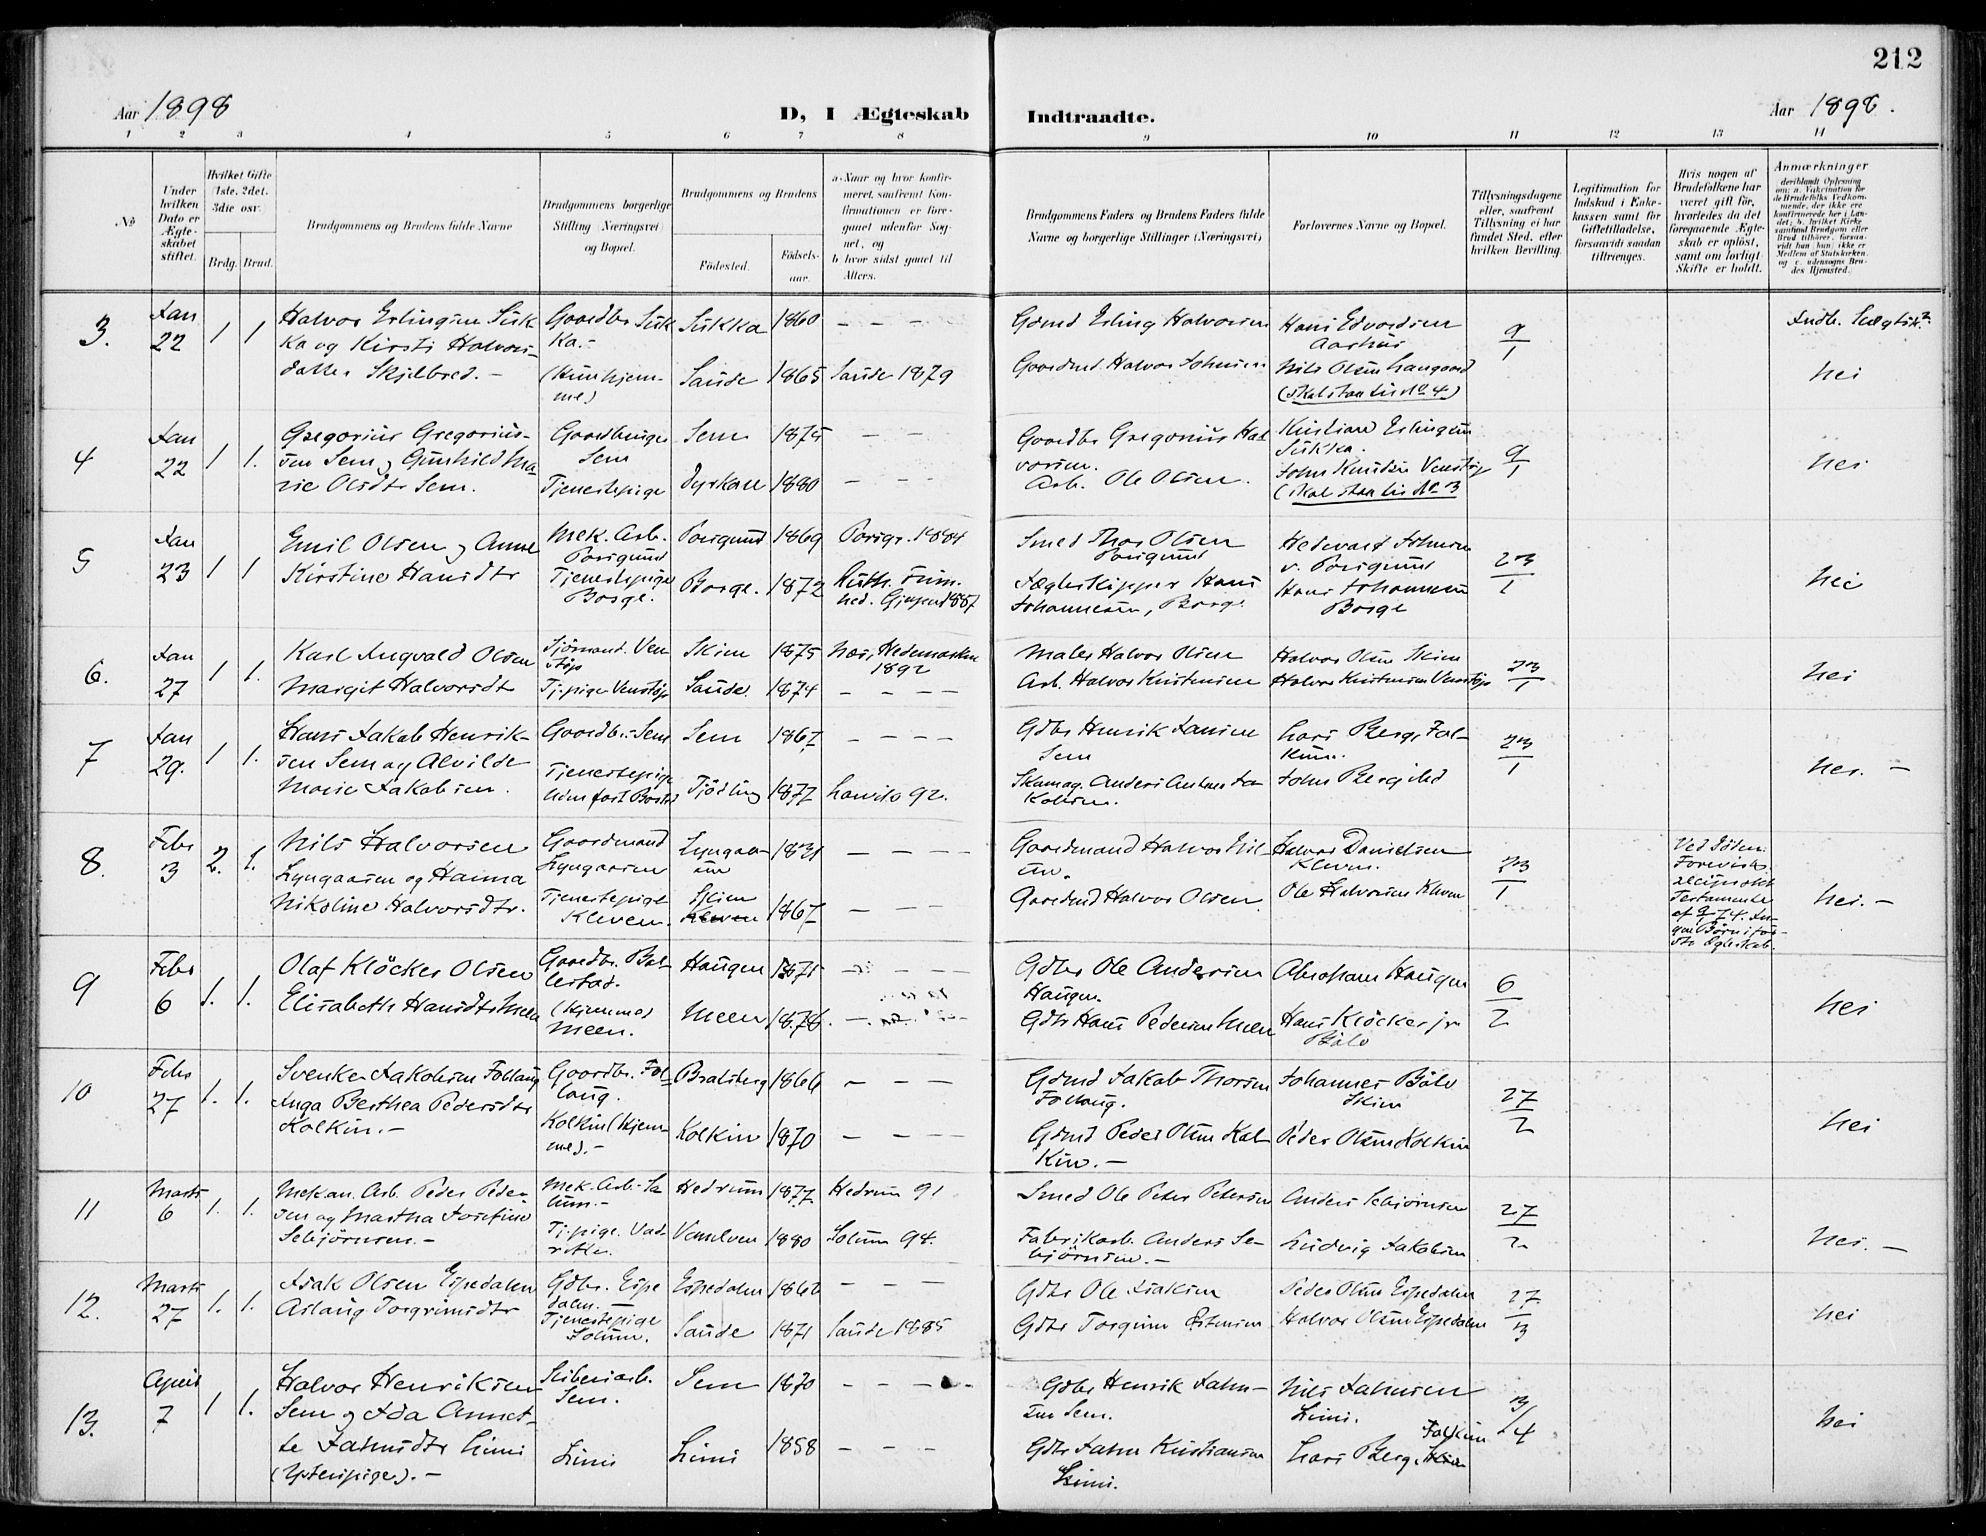 212
Aar 1898
D, I Ægteskab
Indtraadte.
Aar 1898.
1 2 3 4 5 6 7 8 9 10 11 12 13 14
No
Under hvilken Dato er Ægteskabet stiftet.
Hvilket Gifte (1ste, 2det, 3die osv.
Brdg. Brud.
Brudgommens og Brudens fulde Navne
Brudgommens borgerlige Stilling (Næringsvei) og Bopæl.
Brudgommens og Brudens
Fødested.
Fødselsaar.
a. Naar og hvor konfirmeret, saafremt Konfirmationen er foregaaet udenfor Sognet, og
b. hvor sidst gaaet til Alters.
Brudgommens Faders og Brudens Faders fulde Navne og borgerlige Stillinger (Næringsvei)
Forlovernes Navne og Bopæl.
Tillysningsdagene eller, saafremt Tillysning ei har fundet Sted, efter hvilken Bevilling.
Legitimation for Indskud i Enkekassen samt for Giftetilladelse, forsaavidt saadan tiltrænges.
Hvis nogen af Brudefolkene har været gift før, hvorledes da det foregaaende Ægteskab er opløst, samt om lovligt Skifte er holdt.
Anmærkninger
3.
Jan 22
1 1
Halvor Erlingsen Sükka og Kirsti Halvorsdatter Skjelbred. –
Gaardbr Sükka. –
(hünhjemme)
Sükka 1860 – – –
Saude 1865 Saude 1879
Gdmd Erling Halvorsen
Gaardmd. Halvor Johnsen
Hans Edvardsen Aarhus
Nils Olsen Haugaard
(skal staa ved No 4)
9/1
nei
4
Jan 22
1 1.
Gregorius Gregoriussen Sem og Gunhild Marie Olsdtr Sem.
Gaardbruger Sem
Tjenestepige
Sem 1875 – –
Dyrkoll 1880 – – –
Gaardbr Gregorius Halvorsen.
Arb. Ole Olsen.
Kristian Erlingsen Sükka.
John Knudsen Venstøp
(skal staa ved No 3
9/1
nei
5
Jan 23
1 1
Emil Olsen og Anne Kirstine Hansdtr
Mek. Arb. Porsgrund
Tjenestepige Borge.
Porsgrund 1869 Porsgr. 1884
Borge. 1872 Luth. Frimen. Gjerpen 1887
Smed Thor Olsen Porsgrund
Jægtskipper Hans Johannesen, Borge
Hedevald Johnsen v. Porsgrund
Hans Johannesen Borge
23/1
nei
6.
Jan 27
1 1.
Karl Ingvald Olsen
Margit Halvorsdtr
Sjömand. Venstöp
Tj.pige Venstøp
Skien 1875 Næs, Hedemarken 1892
Saude. 1874 – – – –
Maler Halvor Olsen
Arb. Halvor Kristensen
Halvor Olsen Skien
Halvor Kristensen Venstøp
23/1
nei
7
Jan 29.
1 1.
Hans Jakob Henriksen Sem og Alvilde Marie Jakobsen.
Gaardbr. – Sem
Tjenestepige
Sem 1867 – – – –
Tjödling 1877 Larvik 92.
Gdbr Henrik Jansen Sem
Skomag. Anders Anders Jakobsen.
Lars Berg, Folkum.
John Bergsted
23/1
nei. –
8.
Febr 3
2. 1.
Nils Halvorsen Lyngaasen og Hanna Nikoline Halvorsdtr.
Gaardmand Lyngaasen
Tjenestepige Kleven.
Lyngaasen 1831 – – –
Skien Kleven 1867 – – –
Gaardmand Halvor Nilsen.
Gaardmd Halvor Olsen
Halvor Danielsen Kleven.
Ole Halvorsen Kleven
23/1
nei. –
9
Febr 6
1. 1.
Olaf Klöcker Olsen
Elisabeth Hansdtr Meen
Gaardbr. Ballestad.
(hjemme) Meen.
Haugen 1871 – – –
Meen 1878.
Gdbr Ole Andersen Haugen.
Gdbr Hans Pedersen Meen
Abraham Haugen
Hans Klöcker jr Bölv
6/2
nei
10
Febr 27
1. 1.
Svenke Jakobsen Follaug
Inga Berthea Pedersdtr Kolkin. –
Gaardbr. Follaug.
Kolkin (hjemme). –
Bratsberg 1866 – – –
Kolkin 1870 – – –
Gdmd Jakob Thorsen Follaug.
Gdmd Peder Olsen Kolkin. –
Johannes Bölv Skien
Peder Olsen Kolkin
27/2
nei
11
Marts 6
1. 1.
Mekan. Arb. Peder Pedersen og Martha Josefine Sebjörnsen. –
Hedrum 1877. Hedrum 91
1880 Solum 94.
Smed Ole Peter Petersen
Fabrikarb. Anders Sebjörnsen. –
Anders Sebjörnsen
Ludvig Jakobsen
27/2
nei. –
12.
Marts 27
1. 1.
Isak Olsen Espedalen
Aslaug Torgrimsdtr
Gdbr. Espedalen. –
Tjenestepige Solum.
Espedalen 1862 – – –
Saude 1871 Saude 1885
Gdbr Ole Isaksen
Peder Olsen Espedalen
Halvor Olsen Espedalen
27/3
nei
13.
April 7
1 1.
Halvor Henriksen Sem og Ada Annette Jahnsdtr Limi
Sem.
Limi
Sem 1870 – – –
Limi 1858 – – –
Gdbr Henrik Jahnsen Sem.
Gdbr Jahn Kristiansen Limi.
Nils Jahnsen Limi.
Lars Berg, Folkum
3/4
nei